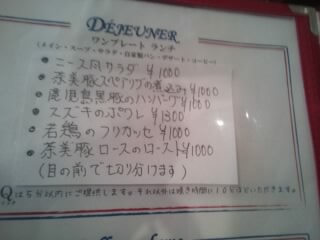 DÉJEUNER
ワンプレート ランチ
(メイン・スープ・サラダ・自家製パン・デザート・コーヒー)
• ニース風サラダ ¥1000
• 茶美豚スペアリブの煮込み ¥1000
• 鹿児島黒豚のハンバーグ ¥1000
• スズキのポワレ ¥1300
• 若鶏のフリカッセ ¥1000
• 茶美豚ロースのロースト ¥1000
(目の前で切り分けます)
Qは5分以内にご提供します。それ以外は焼き時間に10分ほどいただきます。